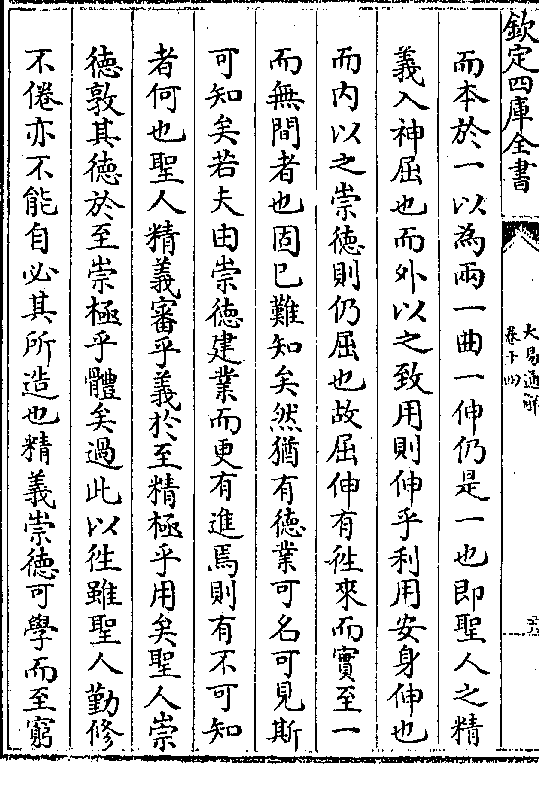 欽定四庫全書
大易通解
卷十四
而本於一以為兩一曲一伸仍是一也即聖人之精
義入神屈也而外以之致用則伸乎利用安身伸也
而内以之崇徳則仍屈也故屈伸有徃來而實至一
而無間者也固已難知矣然猶有徳業可名可見斯
可知矣若夫由崇徳建業而更有進焉則有不可知
者何也聖人精義審乎義於至精極乎用矣聖人崇
徳敦其徳於至崇極乎體矣過此以徃雖聖人勤修
不倦亦不能自必其所造也精義崇徳可學而至窮